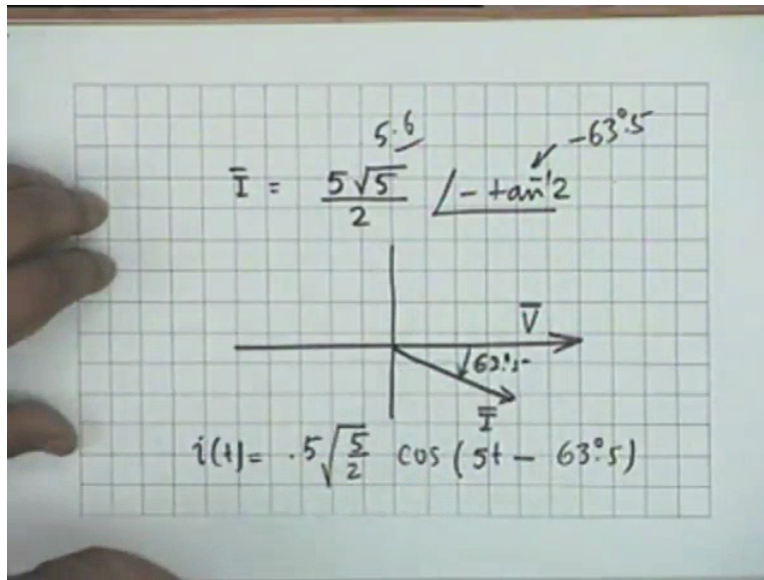 5.6
-63°.5
Ī = 5√5 / 2 ∠- tan⁻¹2
V̄
63°.5
Ī
i(t)= .5√5/2 cos (5t - 63°.5)